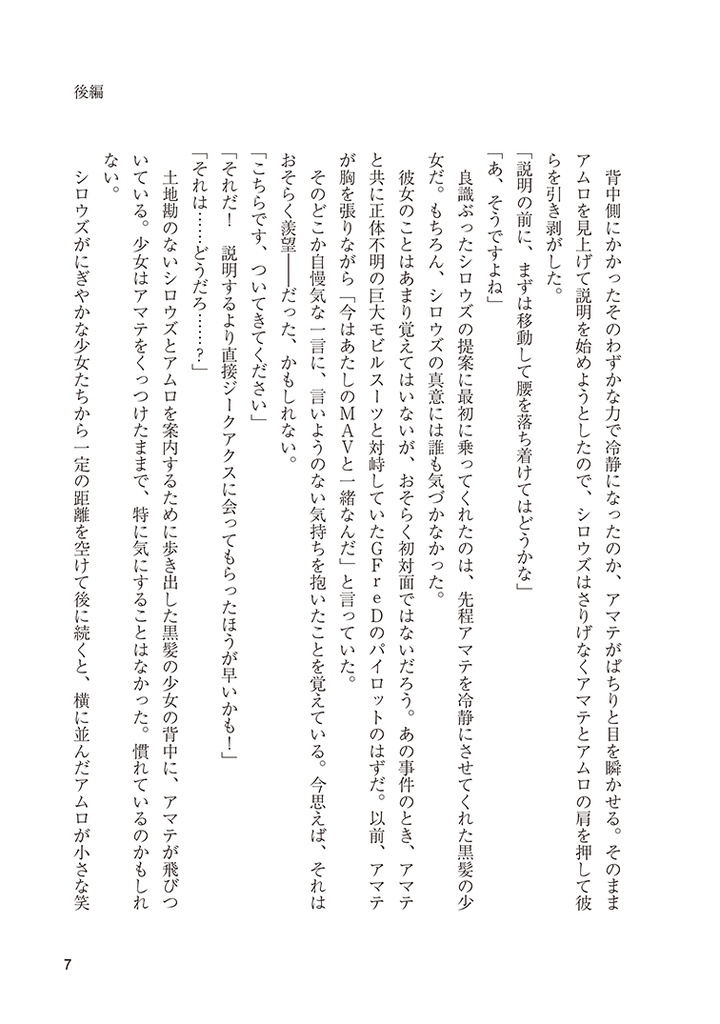 後編
　背中側にかかったそのわずかな力で冷静になったのか、アマテがぱちりと目を瞬かせる。そのまま
アムロを見上げて説明を始めようとしたので、シロウズはさりげなくアマテとアムロの肩を押して彼
らを引き剥がした。
「説明の前に、まずは移動して腰を落ち着けてはどうかな」
「あ、そうですよね」
　良識ぶったシロウズの提案に最初に乗ってくれたのは、先程アマテを冷静にさせてくれた黒髪の少
女だ。もちろん、シロウズの真意には誰も気づかなかった。
　彼女のことはあまり覚えてはいないが、おそらく初対面ではないだろう。あの事件のとき、アマテ
と共に正体不明の巨大モビルスーツと対峙していたGFreDのパイロットのはずだ。以前、アマテ
が胸を張りながら「今はあたしのMAVと一緒なんだ」と言っていた。
　そのどこか自慢気な一言に、言いようのない気持ちを抱いたことを覚えている。今思えば、それは
おそらく羨望――だった、かもしれない。
「こちらです、ついてきてください」
「それだ！　説明するより直接ジークアクスに会ってもらったほうが早いかも！」
「それは……どうだろ……？」
　土地勘のないシロウズとアムロを案内するために歩き出した黒髪の少女の背中に、アマテが飛びつ
いている。少女はアマテをくっつけたままで、特に気にすることはなかった。慣れているのかもしれ
ない。
　シロウズがにぎやかな少女たちから一定の距離を空けて後に続くと、横に並んだアムロが小さな笑
7